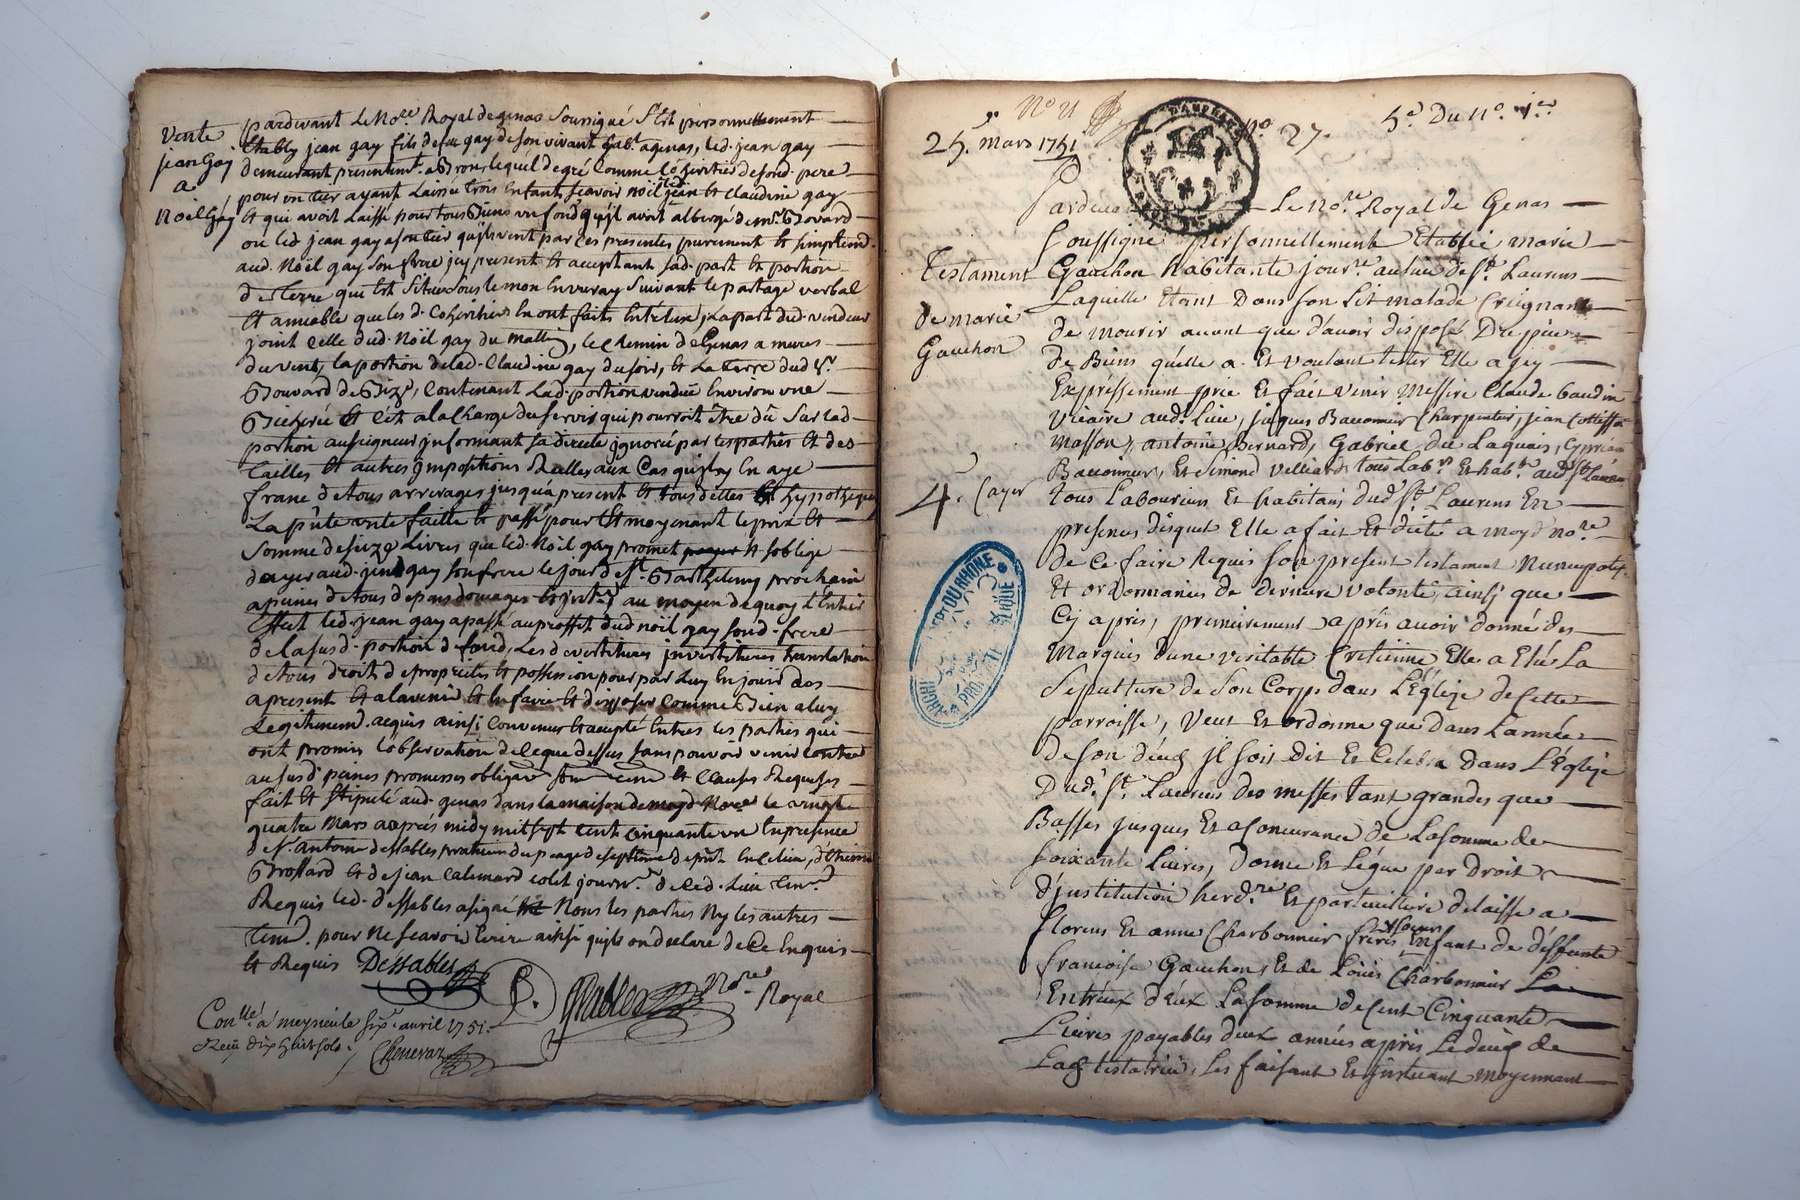 vente
jean Gay
a
Noel Gay
pardevant le No.re Royal de genas soussigné s'est personnellement
Etably jean gay fils de feu gay de son vivant hab.t a genas, led. jean gay
demeurant presentem.t a Bron lequel de gré comme coheritier de son d. pere
pour un tier ayant laissée trois enfants scavoir noël jean et claudine gay
et qui avoit laissé pour tous Biens un fond qu'il avoit albergé de m.r Bovard
ou led jean gay a son tier qu'il vent par ces presentes purement et simplem.t
aud. Noël gay son frere icy present et aceptant sad. part et portion
de terre qui est situé sous le mon suivant le partage verbal
et amiable que les d. coheritiers en ont faits entre eux, la part dud. vendeur
joint celle dud. Noël gay du mattin, le chemin de Genas a mures
du vent, la portion de lad. Claudine gay du soir, et la terre dud S.r
Bouvard de Bize, contenant lad. portion venduë environ une
Bicheréé et c'est a la charge du servis qui pourroit être dû sur lad
portion au seigneur informant sa directe ignoreé par les partiés et des
tailles et autres jmpositions Réelles aux cas qu'il y en aye
franc de tous arrerages jusqu'a present et tous d'elles et hypotheques
La p.nte vente faitte et passé pour et moyenant le prix et
somme de seize Livres que led. Noël gay promet et s'oblige
de payer aud. jean gay son frere le jour de s.t Barthelemy prochain
a peines de tous depens domages et au moyen de quoy l'entier
Effect led. jean gay a passé au proffit dud noël gay son d. frere
de la susd. portion de fond, les devettitures jnvestitures translation
de tous droit de proprietes et possession pour par luy en jouir des
a present et a l'avenir et en faire et disposer comme Bien a luy
Legitimem.t acquis ainsi convenu et accepté entres les parties qui
ont promis l'observation de ce que dessus sans pouvoir venir contre
au susd. peines promesses obliga.on et clauses Requises
fait et stipulé aud. genas dans la maison de moyd No.re le vingt
quatre Mars aprés midy mil sept cent cinquante un En presence
de S.r antoine dessables du peage de septeme de p.nt En ce lieu, d'Etienne
Brossard et de jean calemard journ.r de ced. Lieu tem.s
Requis led. dessables a signé Nons les parties Ny les autres
tem.s pour Ne scavoir Ecrire ainsi qu'ils on declaré de ce Enquis
et Requis Dessables
No.re Royal
Con.llé a meysieule six.e avril 1751.
Receu dix huit sols.
Cheneraz
N.o 21
25. mars 1751
N.o 27.
5.e Du n.o 1.er
Pardevant Le No.re Royal de Genas
soussigné personnellement Etablie marie
Testament
de marie
Gauchon
Gauchon habitante jour.re au lieu de S.t Laurens
Laquelle Etant Dans son Lit malade Creignant
de mourir avant que d'avoir disposé Du peu
de Biens qu'elle a. Et voulant tester Elle a icy
Expressement prié Et fait venir Messire Claude Gaudin
Vicaire aud. Lieu, jaques Bauonnier Charpentier, jean
Masson, antoine Bernard, Gabriel die Laquais, Cyprian
Bauonnier, Et Simond Velliard tous Lab.rs Et hab.ts aud S.t Laurens
4.e Cayer
tous Laboureurs Et habitans dud. S.t Laurens En
presences desquels Elle a fait Et dicté a moyd No.re
de ce faire Requis son present testament Nuncupatif
Et ordonnances de derniere volonté, ainsi que
Cy après, premierement après avoir donné des
Marques d'une veritable Cretienne Elle a Elû La
Sepulture de Son Corps dans L'Eglise de Cette
parroisse, Veut Et ordonne que dans L'année
de son décés jl soit dit Et Celebré Dans L'Eglise
Dud. S.t Laurens des messes tant grandes que
Basses jusques Et a Concurance de La somme de
soixante Livres, Donne Et Légue par Droit
d'jnstitution hered.re Et particuliere delaisse a
Florens Et anne Charbonnier freres Et soeurs Enfant de deffunte
francoise Gauchon, Et de Louis Charbonnier La
Entreux deux La somme de Cent Cinquante
Livres payables deux années après Le décés de
Lad testatrice, Les faisant Et jnstituant moyennant
ARCHIVES DÉPT DU RHONE
PROPRIÉTÉ PUBLIQUE